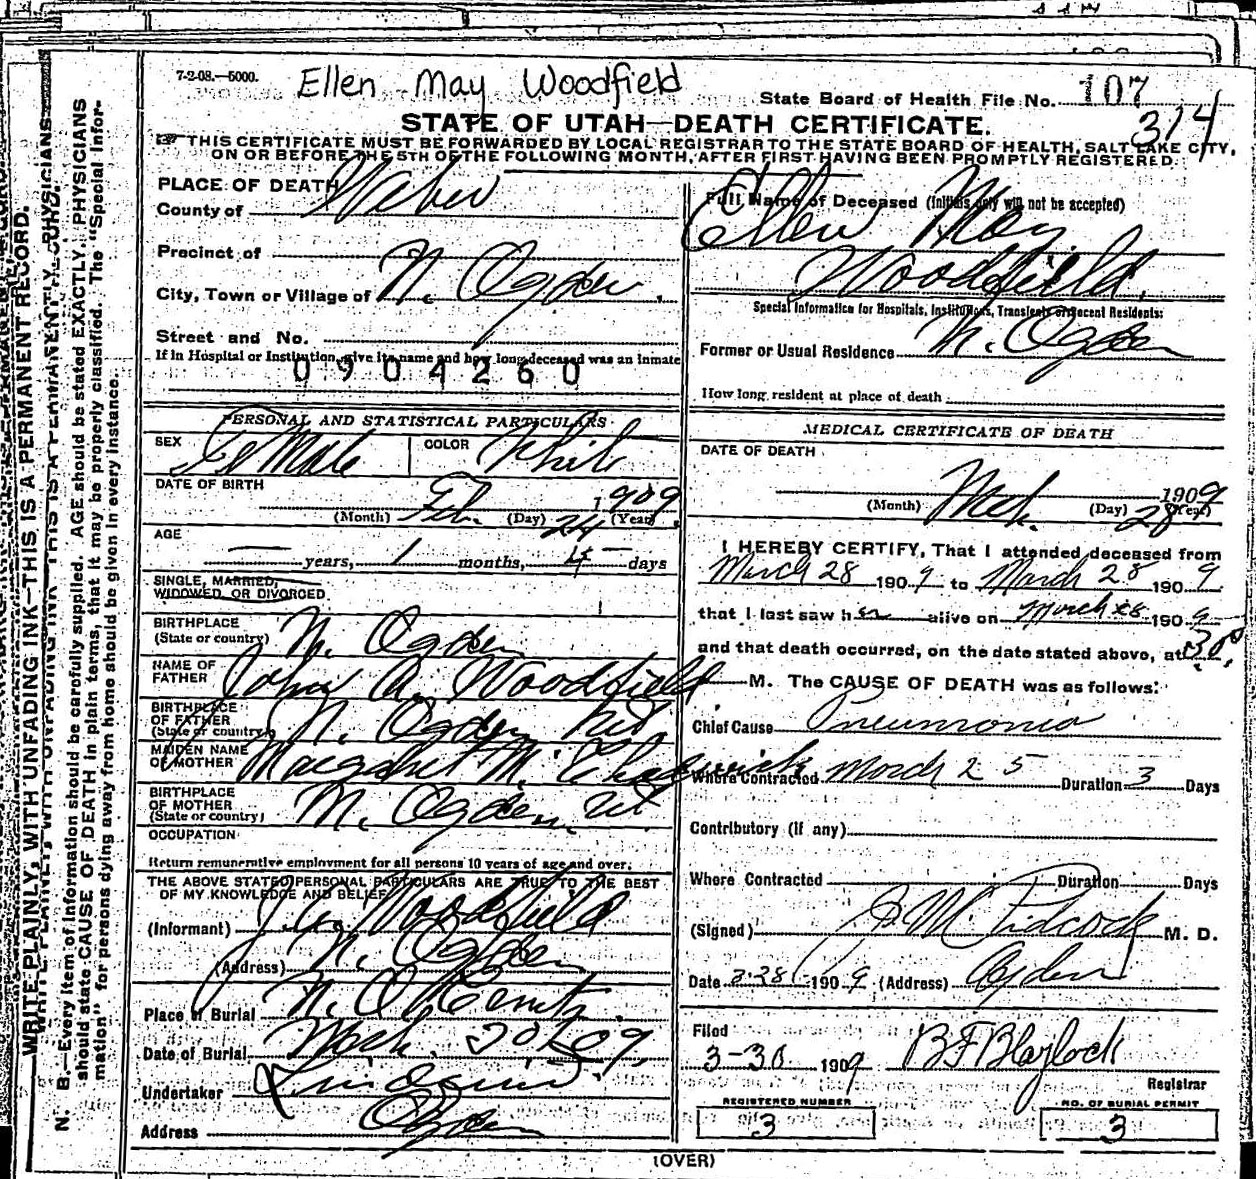 7-2-08.—5000.
Ellen May Woodfield
State Board of Health File No. 107
314
STATE OF UTAH—DEATH CERTIFICATE.
THIS CERTIFICATE MUST BE FORWARDED BY LOCAL REGISTRAR TO THE STATE BOARD OF HEALTH, SALT LAKE CITY,
ON OR BEFORE THE 5TH OF THE FOLLOWING MONTH, AFTER FIRST HAVING BEEN PROMPTLY REGISTERED.
WRITE PLAINLY, WITH UNFADING INK—THIS IS A PERMANENT RECORD.
N. B.—Every item of information should be carefully supplied. AGE should be stated EXACTLY. PHYSICIANS
should state CAUSE OF DEATH in plain terms, that it may be properly classified. The "Special Infor-
mation" for persons dying away from home should be given in every instance.
PLACE OF DEATH
County of Weber
Precinct of
City, Town or Village of N. Ogden.
Street and No.
If in Hospital or Institution, give its name and how long deceased was an inmate
0904260
PERSONAL AND STATISTICAL PARTICULARS
SEX Female COLOR White
DATE OF BIRTH
(Month) Feb. (Day) 24 1909 (Year)
AGE
— years, 1 months, 4 days
SINGLE, MARRIED,
WIDOWED OR DIVORCED
BIRTHPLACE
(State or country) N. Ogden
NAME OF
FATHER John A. Woodfield
BIRTHPLACE
OF FATHER
(State or country) N. Ogden Ut.
MAIDEN NAME
OF MOTHER Margaret M. Chadwick
BIRTHPLACE
OF MOTHER
(State or country) N. Ogden Ut
OCCUPATION
Return remunerative employment for all persons 10 years of age and over.
THE ABOVE STATED PERSONAL PARTICULARS ARE TRUE TO THE BEST
OF MY KNOWLEDGE AND BELIEF
(Informant) J. A. Woodfield
(Address) N. Ogden
Place of Burial N. O.
Date of Burial 09.
Undertaker Lindquist
Address Ogden
Full Name of Deceased (Initials only will not be accepted)
Ellen May
Woodfield.
Special Information for Hospitals, Institutions, Transients or Recent Residents:
Former or Usual Residence N. Ogden
How long resident at place of death
MEDICAL CERTIFICATE OF DEATH
DATE OF DEATH
(Month) Mch. (Day) 28 1909 (Year)
I HEREBY CERTIFY, That I attended deceased from
March 28 1909 to March 28 1909
that I last saw her alive on March 28 1909
and that death occurred, on the date stated above, at
M. The CAUSE OF DEATH was as follows:
Chief Cause Pneumonia
Where Contracted March 25 Duration 3 Days
Contributory (if any)
Where Contracted Duration Days
(Signed) Pidcock M. D.
Date 3-28 1909 (Address) Ogden
Filed
3-30 1909 B F Blaylock
Registrar
REGISTERED NUMBER
3
NO. OF BURIAL PERMIT
3
(OVER)